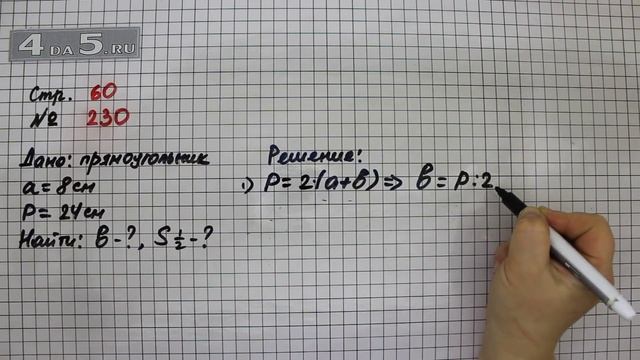 4DA5.RU
Стр. 60
№ 230
Дано: прямоугольник
a = 8 см
P = 24 см
Найти: в - ?, S ½ - ?
Решение:
1) P = 2·(a+в) ⇒ в = P : 2